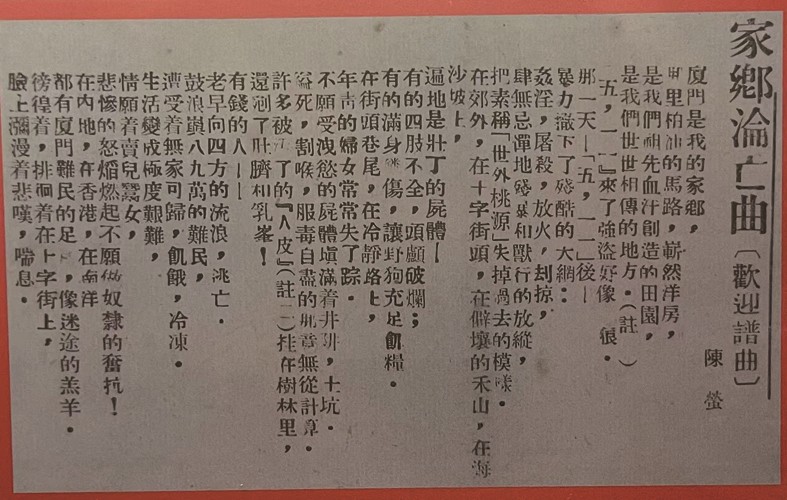 家鄉淪亡曲〔歡迎譜曲〕
陳螢
廈門是我的家鄉，
里柏油的馬路，嶄然洋房，
是我們祖先血汗創造的田園，
是我們世世相傳的地方。（註）
「五，一一」來了強盜好像很。
那一天—「五，一一」後—
暴力撒下了殘酷的大網：
姦淫，屠殺，放火，刦掠，
肆無忌彈地發暴和獸行的放縱，
把素稱「世外桃源」失掉過去的模樣。
在郊外，在十字街頭，在僻壤的禾山，在海
沙坡上，
遍地是壯丁的屍體—
有的四肢不全，頭顱破爛；
有的滿身傷，讓野狗充足飢糧。
在街頭巷尾，在冷靜路上，
年青的婦女常常失了踪。
不願受洩慾的屍體塡滿着井，土坑。
死，割喉，服毒自盡的無從計算。
許多被了的『人皮』（註二）挂在樹林里，
還剜了肚臍和乳峯！
有錢的人——
老早向四方的流浪，逃亡。
鼓浪嶼八九萬的難民，
遭受着無家可歸，飢餓，冷凍。
生活變成極度艱難，
情願着賣兒鬻女，
悲慘的怒熖燃起不願做奴隸的奮抗！
在內地，在香港，在南洋
都有廈門難民的足，像迷途的羔羊。
徬徨着，排徊着在十字街上，
臉上瀰漫着悲嘆，喘息。